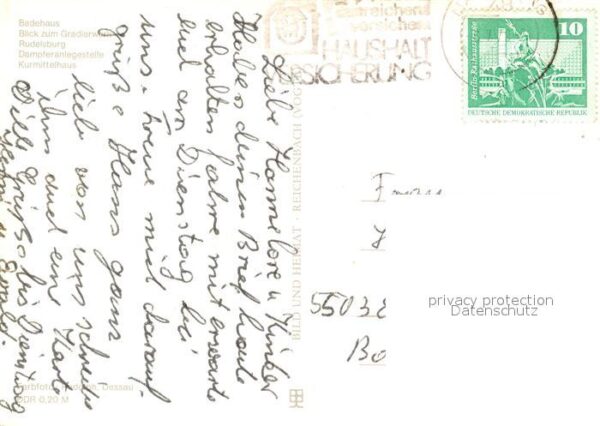 Badehaus
Blick zum Gradierwerk
Rudelsburg
Dampferanlegestelle
Kurmittelhaus
ausreichend
versichert
HAUSHALT
VERSICHERUNG
10
Berlin, Rathausstraße
DEUTSCHE DEMOKRATISCHE REPUBLIK
Liebe Hannelore u. Kinder
Habe deinen Brief heute
erhalten fahre mit erwarte
euch am Dienstag bei
uns. Freue mich darauf.
grüße Hans ganz
lieb von uns schreibe
ihm auch eine Karte
Viele Grüße bis Dienstag
BILD UND HEIMAT · REICHENBACH (VOGTL
55032
Bo
privacy protection
Datenschutz
Dessau
DDR 0,20 M